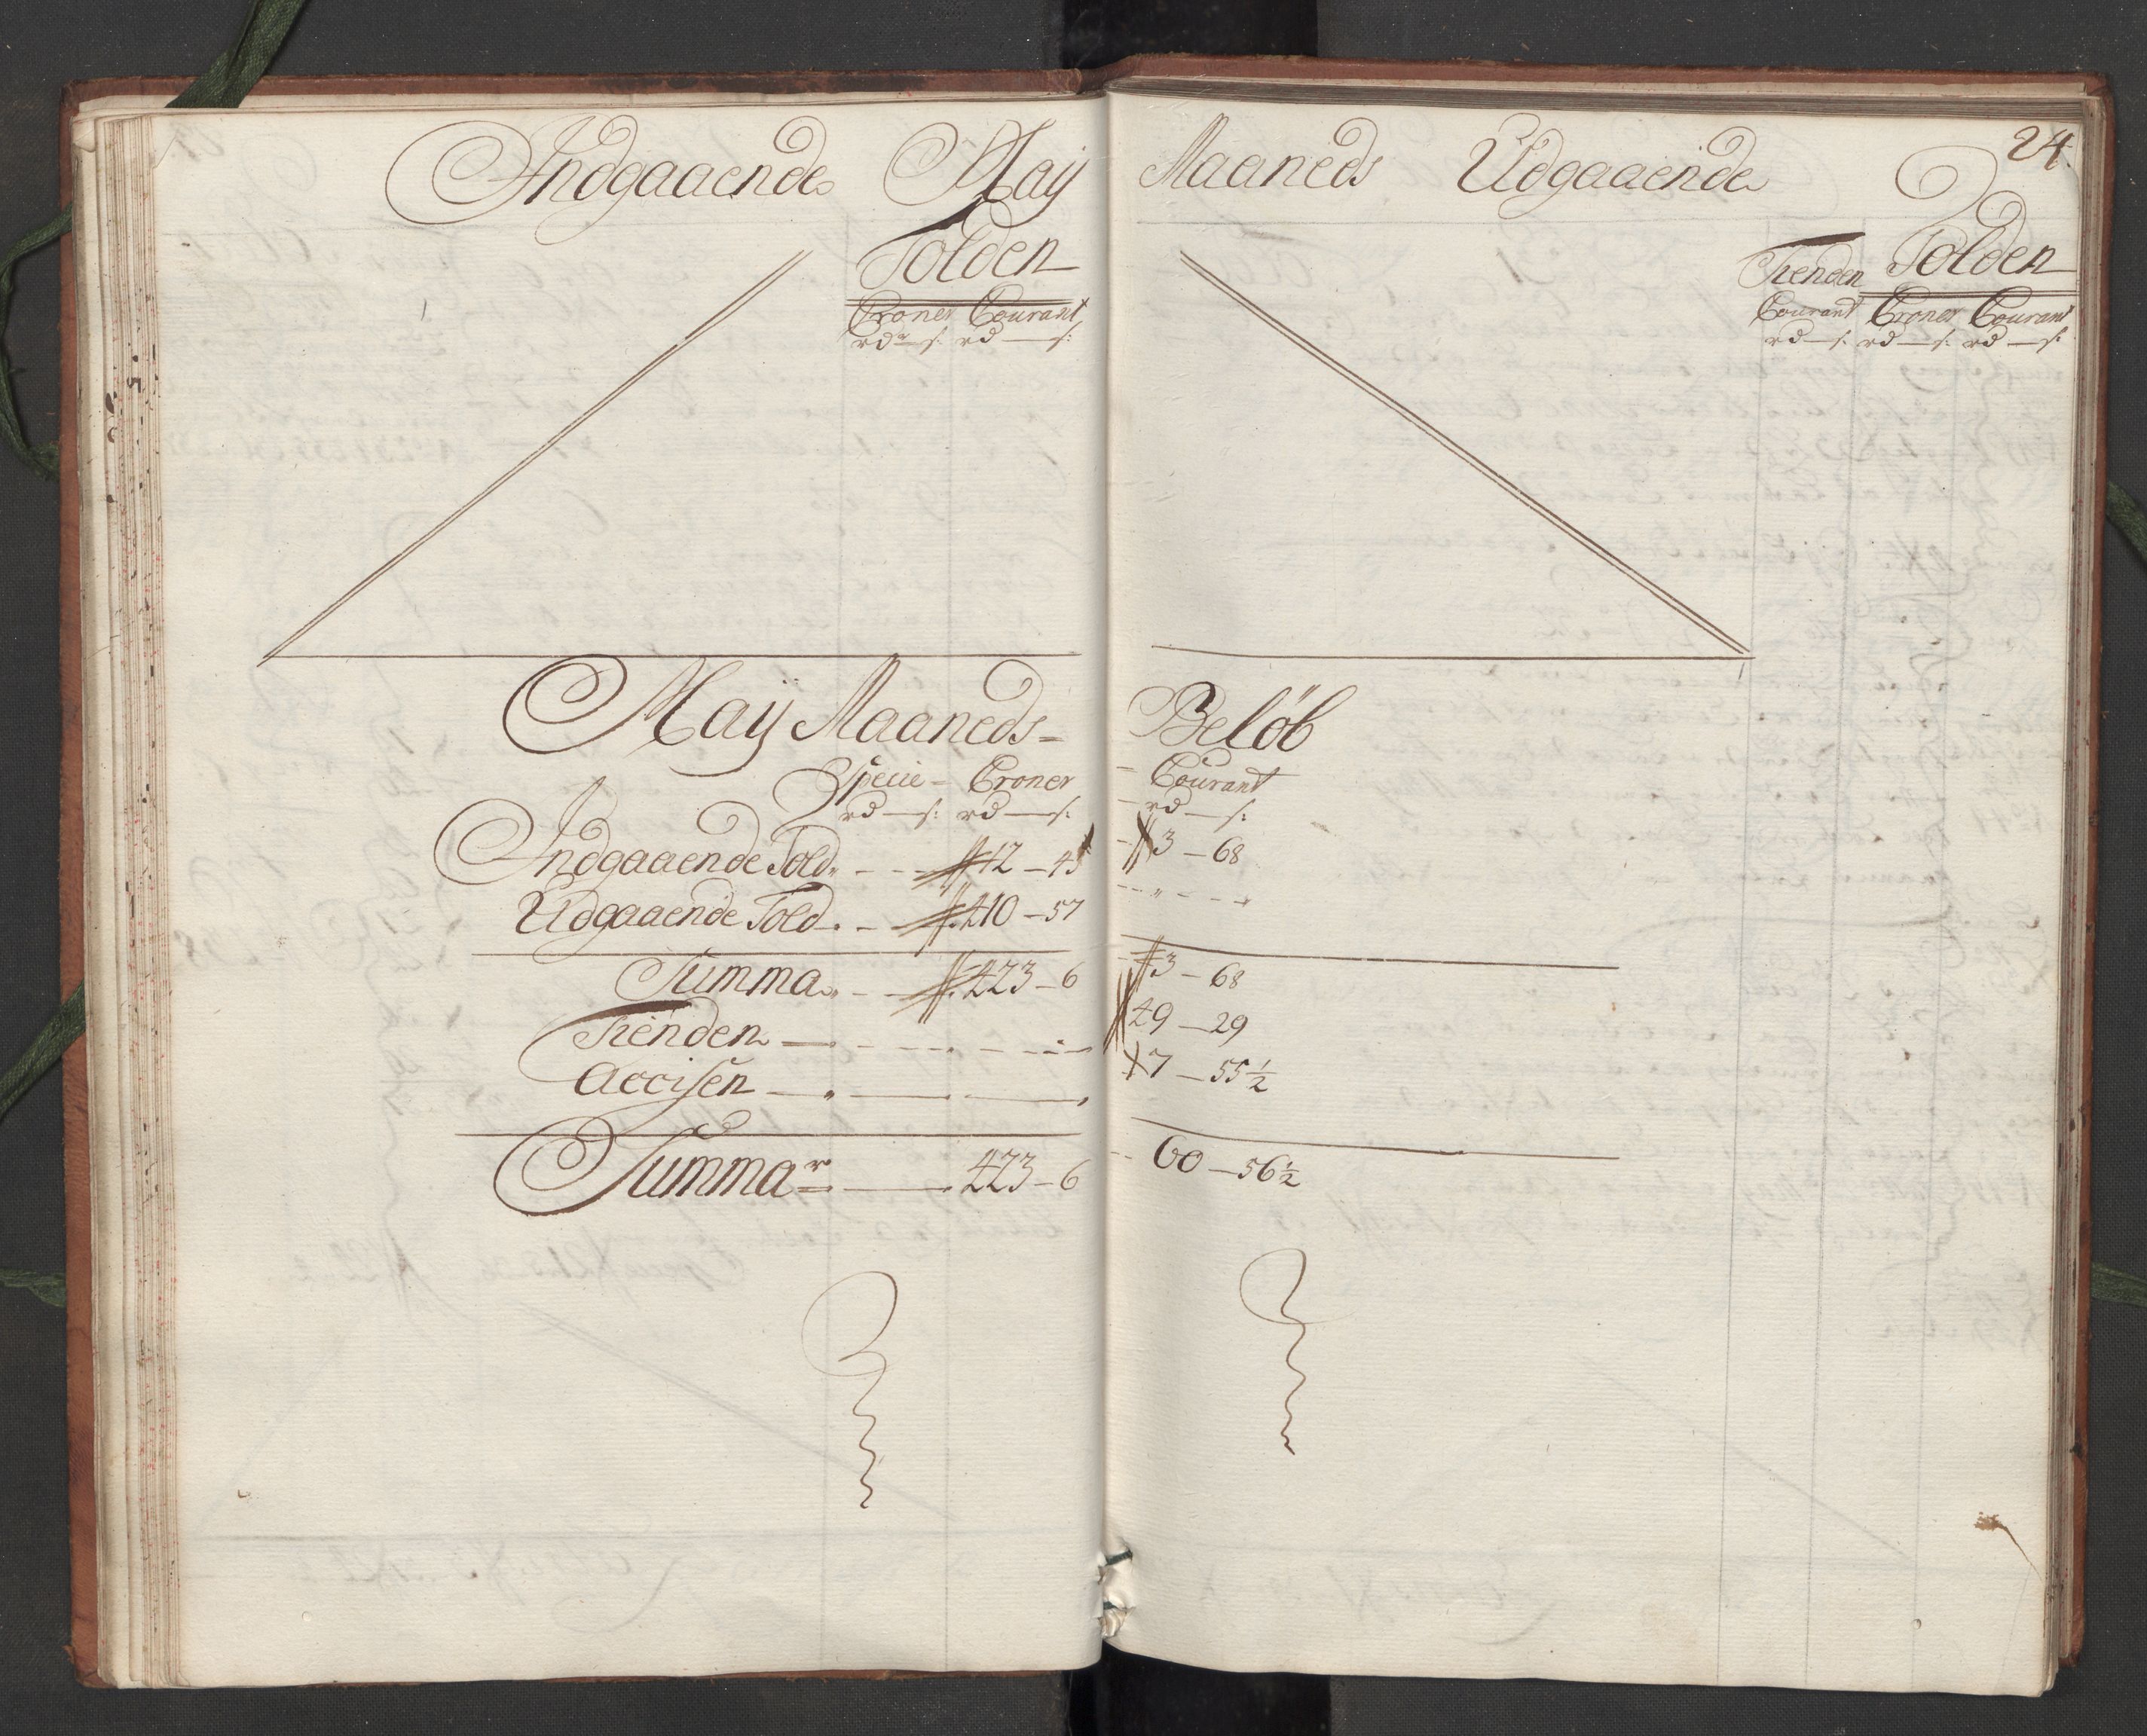 24.
Indgaaende May Maaneds Udgaaende
Tolden
Croner Courant
rdr — s: rd — s:
Tienden Tolden
Courant Croner Courant
rd — s: rd — s: rd — s:
May Maaneds - Beløb
Specie - Croner - Courant
rd — s: rd — s: - rd — s:
Indgaaende Told 12 - 45 3 - 68
Udgaaende Told 410 - 57
Summa 423 - 6 3 - 68
Tienden 49 - 29
Accisen 7 - 55 1/2
Summar 423 - 6 60 - 56 1/2